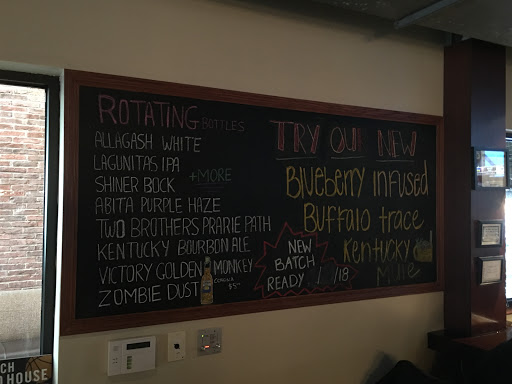 ROTATING BOTTLES
ALLAGASH WHITE
LAGUNITAS IPA
SHINER BOCK +MORE
ABITA PURPLE HAZE
TWO BROTHERS PRARIE PATH
KENTUCKY BOURBON ALE
VICTORY GOLDEN MONKEY
ZOMBIE DUST
CORONA
TRY OUR NEW
Blueberry infused
Buffalo trace
Kentucky
Mule
NEW
BATCH
READY /18
CH
HOUSE